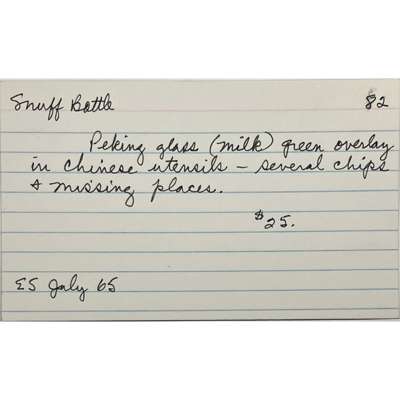 Snuff Bottle 82
Peking glass (milk) green overlay
in Chinese utensils - several chips
& missing places.
$25.
ES July 65